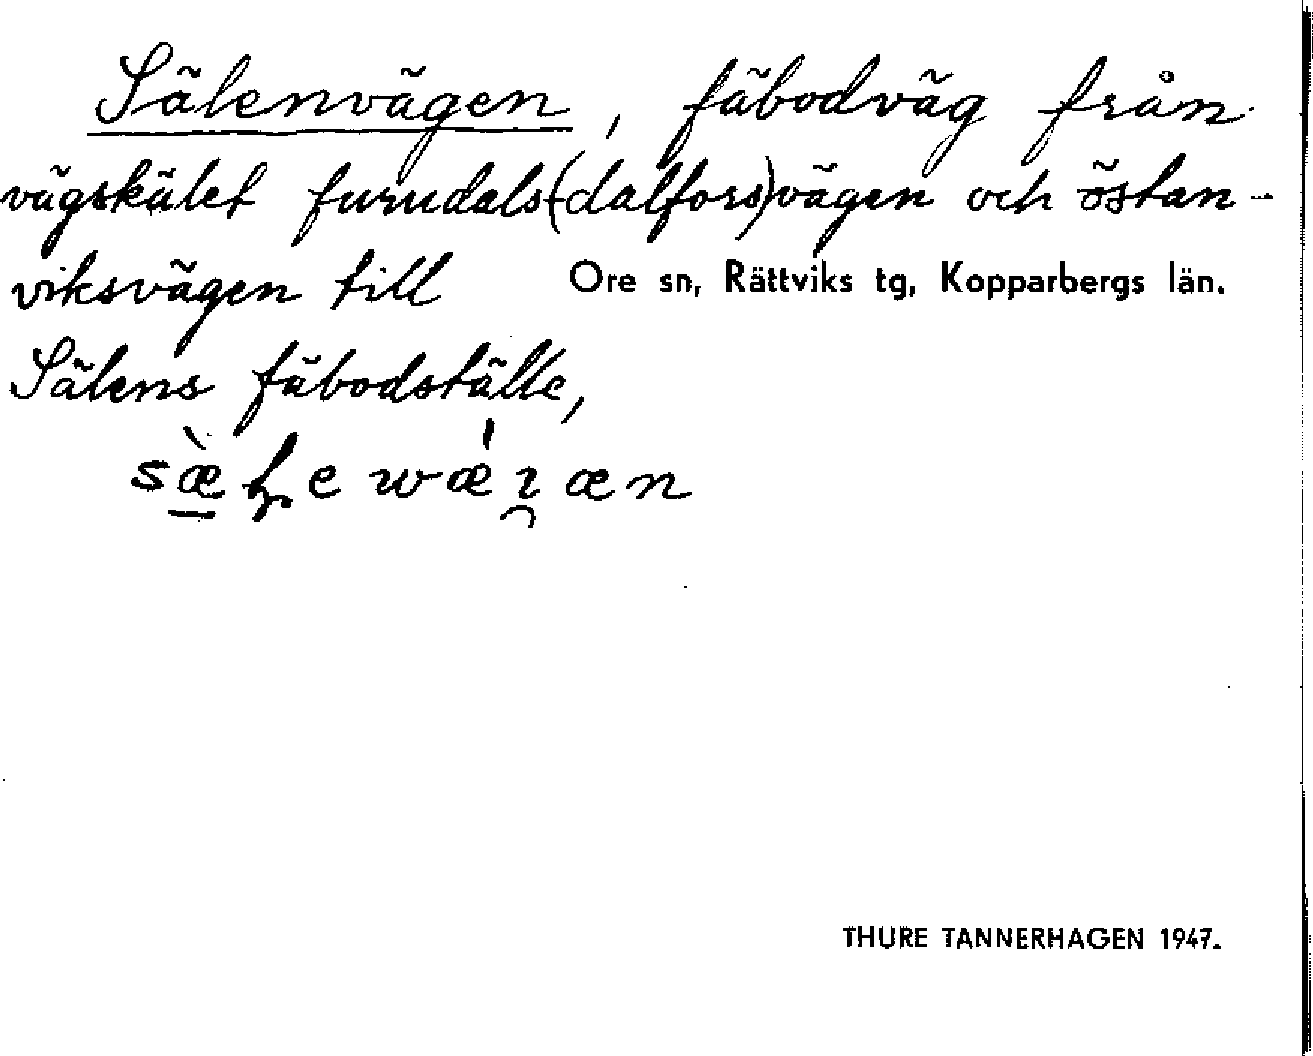 Sälenvägen, fäbodväg från
vägskälet furudals-(dalfors)vägen och östan-
viksvägen till
Ore sn, Rättviks tg, Kopparbergs län.
Sälens fäbodställe,
THURE TANNERHAGEN 1947.